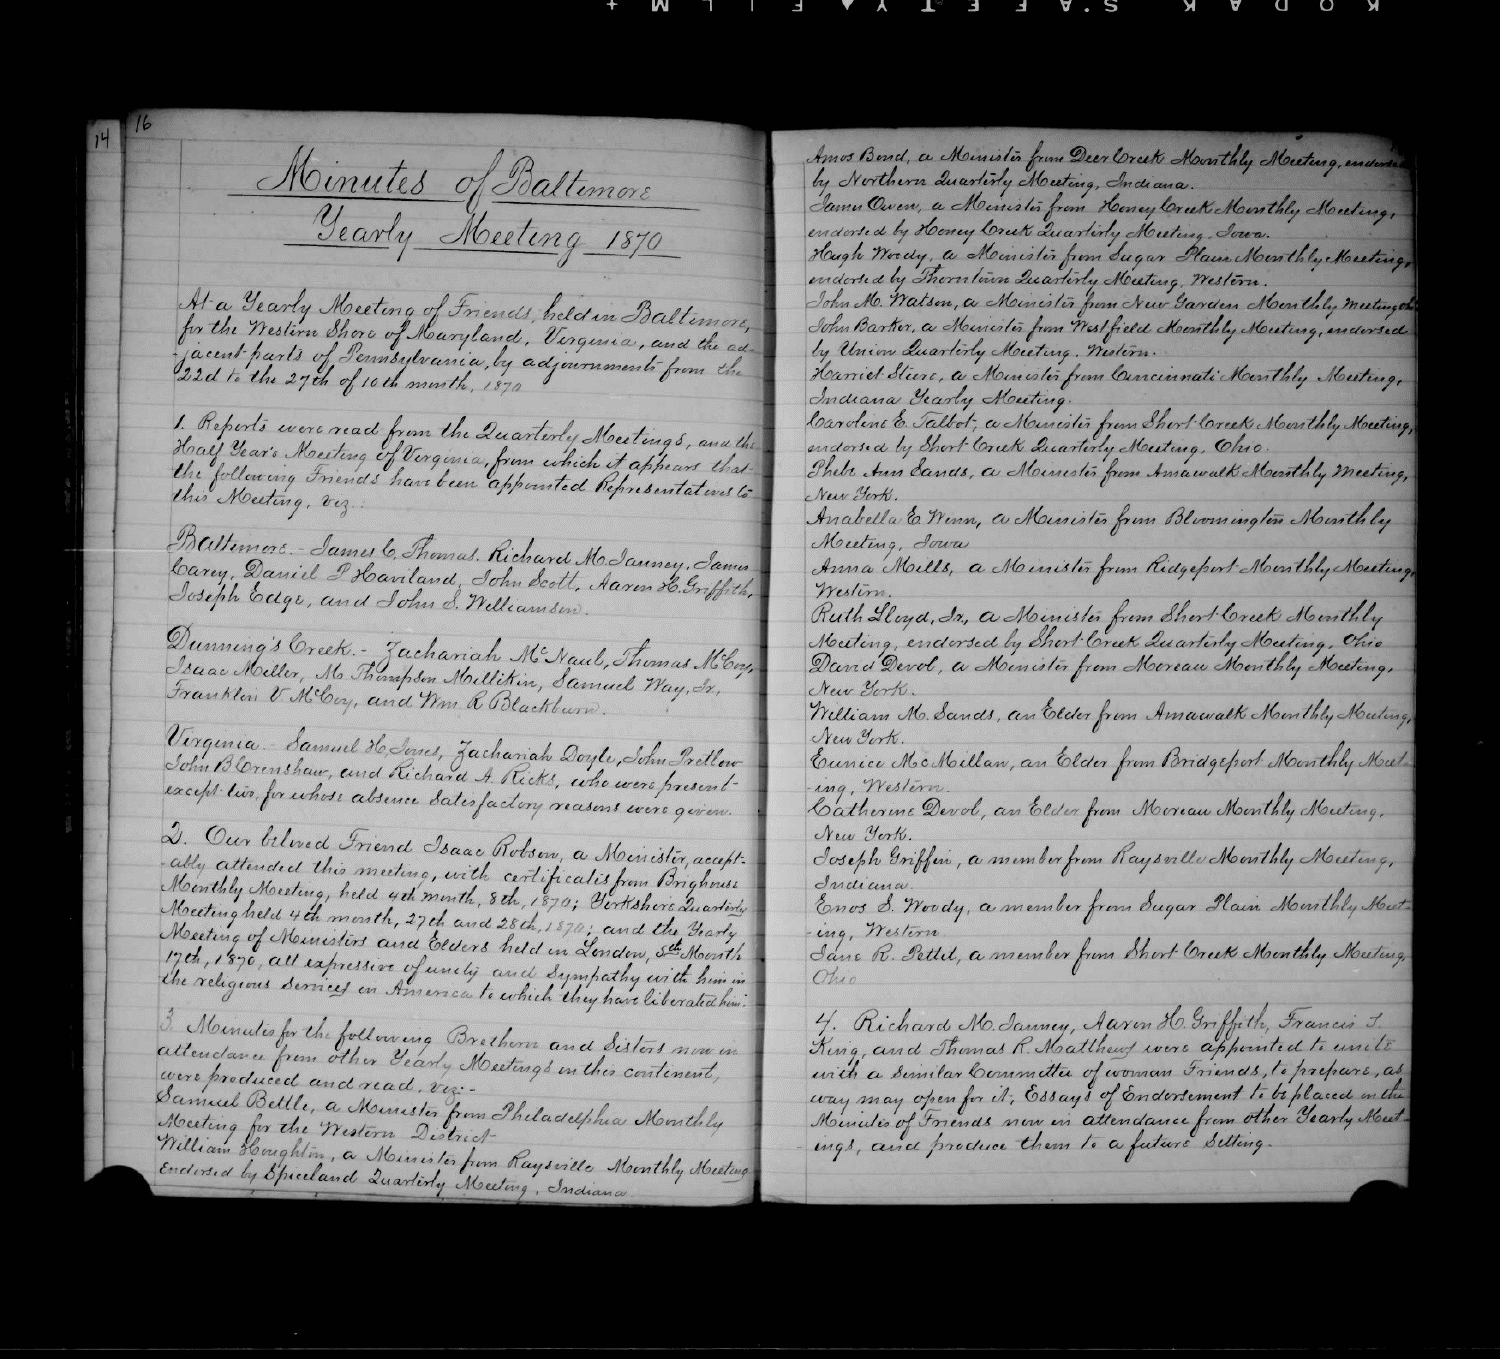 KODAK SAFETY FILM
14
16
Minutes of Baltimore
Yearly Meeting 1870
At a Yearly Meeting of Friends, held in Baltimore,
for the Western Shore of Maryland, Virginia, and the ad-
-jacent parts of Pennsylvania, by adjournments from the
22d to the 27th of 10th month, 1870
1. Reports were read from the Quarterly Meetings, and the
Half Year's Meeting of Virginia, from which it appears that
the following Friends have been appointed Representatives to
this Meeting, viz:
Baltimore.- James C. Thomas. Richard M. Janney, James
Carey, Daniel P Haviland, John Scott, Aaron H. Griffith,
Joseph Edge, and John S. Williamson.
Dunning's Creek.- Zachariah McNaul, Thomas McCoy,
Isaac Miller, M. Thompson Millikin, Samuel Way, Jr,
Franklin V. McCoy, and Wm R Blackburn.
Virginia.- Samuel H. Jones, Zachariah Doyle, John Pretlow
John B Crenshaw, and Richard A. Ricks, who were present
except two, for whose absence satisfactory reasons were given.
2. Our beloved Friend Isaac Robson, a Minister, accept-
-ably attended this meeting, with certificates from Brighouse
Monthly Meeting, held 4th month, 8th, 1870; Yorkshore Quarterly
Meeting held 4th month, 27th and 28th, 1870; and the Yearly
Meeting of Ministers and Elders held in London, 5th Month
17th, 1870, all expressive of unity and Sympathy with him in
the religious services in America to which they have liberated him.
3. Minutes for the following Brethern and Sisters now in
attendance from other Yearly Meetings on this continent,
were produced and read, viz:-
Samuel Bettle, a Minister from Philadelphia Monthly
Meeting for the Western District
William Houghton, a Minister from Raysville Monthly Meeting
Endorsed by Spiceland Quarterly Meeting, Indiana
Amos Bond, a Minister from Deer Creek Monthly Meeting, endorsed
by Northern Quarterly Meeting, Indiana.
James Owen, a Minister from Honey Creek Monthly Meeting,
endorsed by Honey Creek Quarterly Meeting, Iowa.
Hugh Woody, a Minister from Sugar Plain Monthly Meeting,
endorsed by Thorntown Quarterly Meeting, Western.
John M. Watson, a Minister from New Garden Monthly Meeting
John Barker, a Minister from Westfield Monthly Meeting, endorsed
by Union Quarterly Meeting. Western.
Harriet Steere, a Minister from Cincinnati Monthly Meeting,
Indiana Yearly Meeting.
Caroline E. Talbot, a Minister from Short Creek Monthly Meeting,
endorsed by Short Creek Quarterly Meeting, Ohio.
Phebe Ann Sands, a Minister from Amawalk Monthly Meeting,
New York.
Anabella E. Winn, a Minister from Bloomington Monthly
Meeting, Iowa
Anna Mills, a Minister from Ridgeport Monthly Meeting,
Western.
Ruth Lloyd, Jr, a Minister from Short Creek Monthly
Meeting, endorsed by Short Creek Quarterly Meeting, Ohio
David Devol, a Minister from Moreau Monthly Meeting,
New York.
William M. Sands, an Elder from Amawalk Monthly Meeting,
New York.
Eunice McMillan, an Elder from Bridgeport Monthly Meet-
-ing, Western.
Catherine Devol, an Elder from Moreau Monthly Meeting,
New York.
Joseph Griffin, a member from Raysville Monthly Meeting,
Indiana.
Enos S. Woody, a member from Sugar Plain Monthly Meet-
-ing, Western.
Jane R. Pettit, a member from Short Creek Monthly Meeting,
Ohio
4. Richard M. Janney, Aaron H. Griffith, Francis T.
King, and Thomas R. Matthews were appointed to unite
with a similar Committee of woman Friends, to prepare, as
way may open for it, Essays of Endorsement to be placed on the
Minutes of Friends now in attendance from other Yearly Meet-
ings, and produce them to a future Setting.